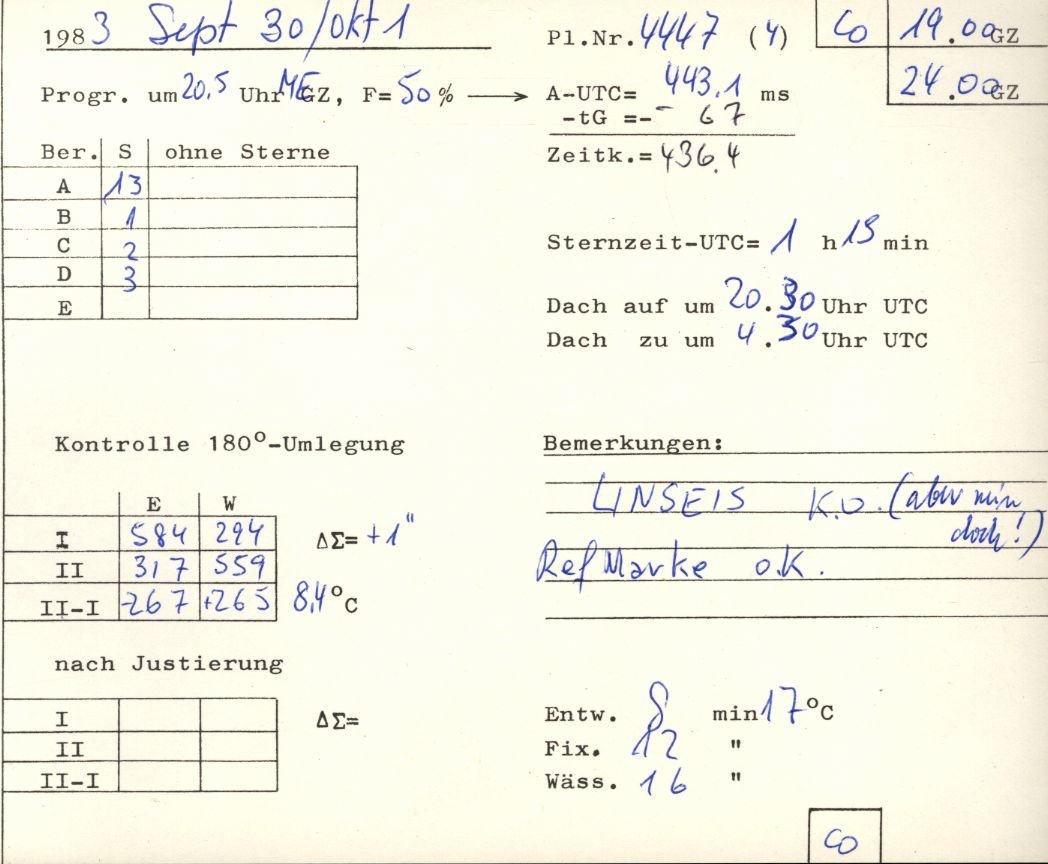 1983 Sept 30/Okt 1
Pl.Nr. 4447 (4)
Co 19.00 GZ
24.00 GZ
Progr. um 20.5 Uhr MEGZ, F= 50 % → A-UTC= 443.1 ms
-tG =-- 67
Zeitk.= 436.4
Ber. S ohne Sterne
A 13
B 1
C 2
D 3
E
Sternzeit-UTC= 1 h 15 min
Dach auf um 20.30 Uhr UTC
Dach zu um 4.30 Uhr UTC
Kontrolle 180°-Umlegung
E W
I 584 294 ΔΣ= +1"
II 317 559
II-I -267 +265 8,4°C
Bemerkungen:
LINSEIS K.O. (aber min
doch!)
Ref Marke o.K.
nach Justierung
I ΔΣ=
II
II-I
Entw. 8 min 17°C
Fix. 12 "
Wäss. 16 "
Co